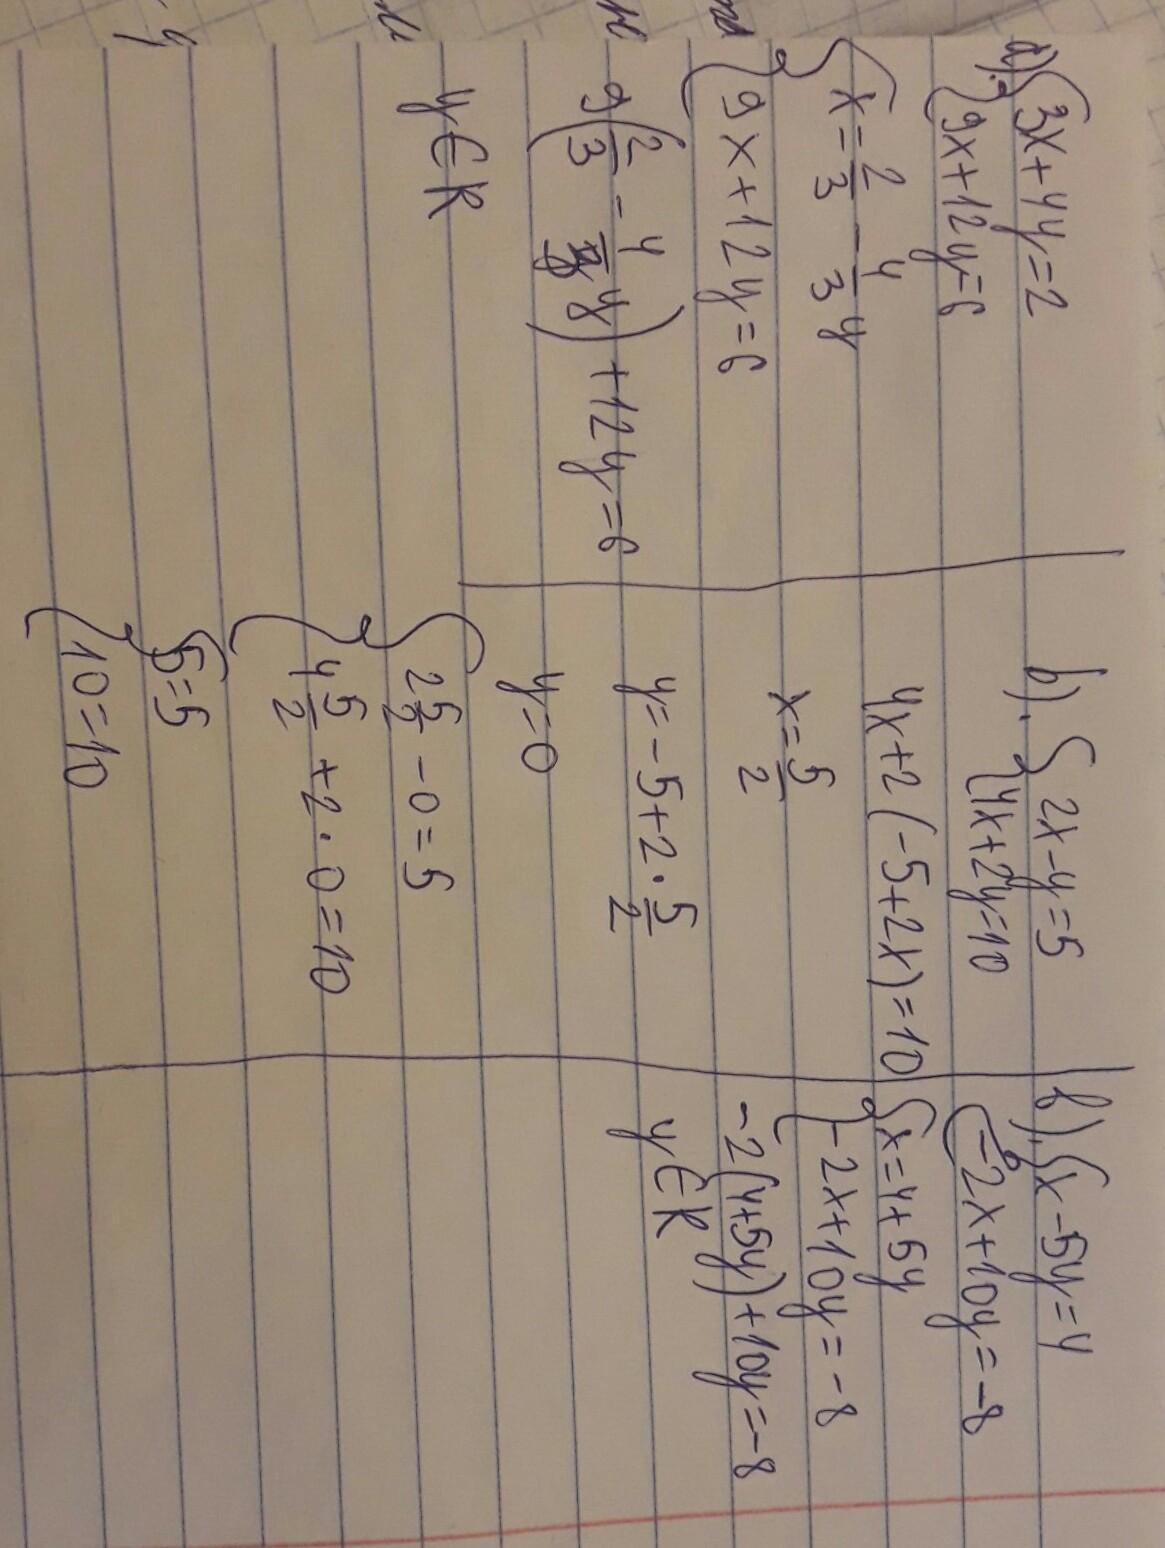 a). { 3x+4y=2
{ 9x+12y=6
{ x = 2/3 - 4/3 y
{ 9x+12y=6
9(2/3 - 4/3 y) + 12y = 6
y∈R
б). { 2x-y=5
{ 4x+2y=10
4x+2(-5+2x)=10
x = 5/2
y = -5+2·5/2
y=0
{ 2 5/2 - 0 = 5
{ 4 5/2 + 2·0 = 10
{ 5=5
{ 10=10
в). { x-5y=4
{ -2x+10y=-8
{ x=4+5y
{ -2x+10y=-8
-2(4+5y)+10y=-8
y∈R